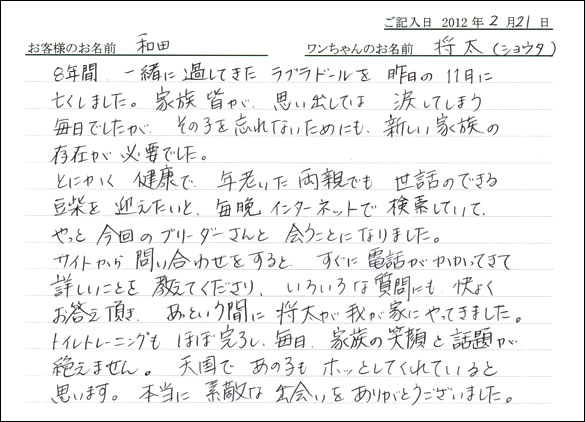 ご記入日 2012年 2月 21日
お客様のお名前 和田 ワンちゃんのお名前 将太(ショウタ)
8年間、一緒に過してきたラブラドールを昨日の11月に
亡くしました。家族皆が、思い出しては 涙してしまう
毎日でしたが、その子を忘れないためにも、新しい家族の
存在が必要でした。
とにかく 健康で、年老いた両親でも 世話のできる
豆柴を 迎えたいと、毎晩インターネットで検索していて、
やっと今回のブリーダーさんと会うことになりました。
サイトから問い合わせをすると すぐに電話がかかってきて
詳しいことを教えてくださり、いろいろな質問にも快よく
お答え頂き、あっという間に将太が我が家にやってきました。
トイレトレーニングも ほぼ完了し、毎日、家族の笑顔と話題が
絶えません。天国で あの子も ホッとしてくれていると
思います。本当に 素敵な 出会いを ありがとうございました。